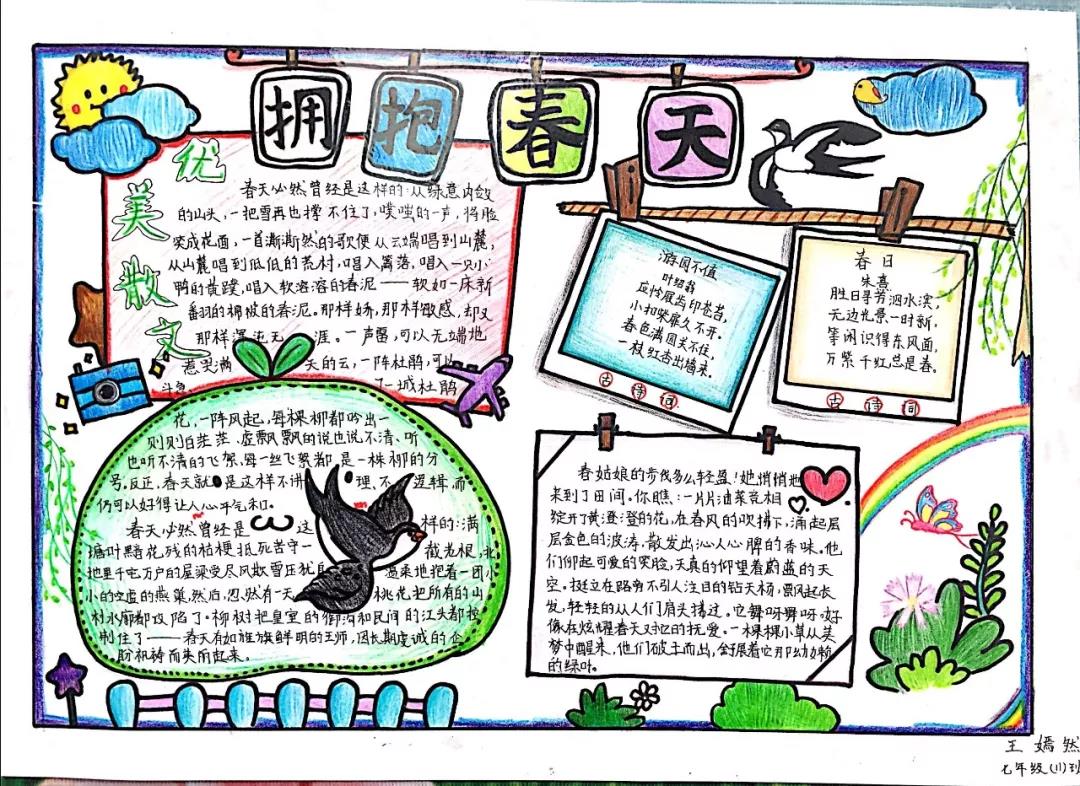 拥抱春天
优美散文
春天必然曾经是这样的:从绿意内敛
的山头,一把雪再也撑不住了,噗嗤的一声,将脸
笑成花面,一首澌澌然的歌便从云端唱到山麓,
从山麓唱到低低的荒村,唱入篱落,唱入一只小
鸭的黄蹼,唱入软溶溶的春泥——软如一床新
翻的棉被的春泥。那样娇,那样敏感,却又
那样 无 涯。一声雷,可以无端地
惹哭满 天的云,一阵杜鹃,可以
斗急 了一城杜鹃
花,一阵风起,每棵柳都吟出一
则则白茫茫、虚飘飘的说也说不清、听
也听不清的飞絮,每一丝飞絮都是一株柳的分
号。反正,春天就是这样不讲 理、不 逻辑,而
仍可以好得让人心平气和。
春天必然曾经是 这 样的:满
塘叶黯花残的枯梗抵死苦守一 截老根,北
地里千宅万户的屋梁受尽风欺雪压犹自 温柔地抱着一团小
小的空虚的燕巢。然后,忽然有一天 桃花把所有的山
村水廓都攻陷了。柳树把皇室的御沟和民间的江头都控
制住了——春天有如旌旗鲜明的王师,因长期虔诚的企
盼祝祷而美丽起来。
游园不值
叶绍翁
应怜屐齿印苍苔,
小扣柴扉久不开。
春色满园关不住,
一枝红杏出墙来。
古诗词
春日
朱熹
胜日寻芳泗水滨,
无边光景一时新,
等闲识得东风面,
万紫千红总是春。
古诗词
春姑娘的步伐多么轻盈!她悄悄地
来到了田间。你瞧:一片片油菜竞相
绽开了黄澄澄的花,在春风的吹拂下,涌起层
层金色的波涛,散发出沁人心脾的香味。他
们仰起可爱的笑脸,天真的仰望着蔚蓝的天
空。挺立在路旁不引人注目的钻天杨,飘起长
发,轻轻的从人们肩头拂过。它舞呀舞呀,好
像在炫耀春天对它的抚爱。一棵棵小草从美
梦中醒来,他们破土而出,全展着它那幼嫩
的绿叶。
王嫣然
七年级(11)班